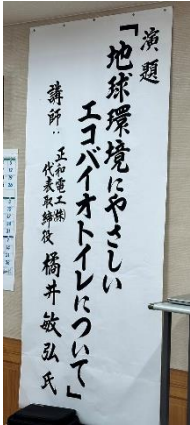 演題
「地球環境にやさしい
エコバイオトイレについて」
講師:
正和電工㈱
代表取締役
橘井敏弘氏